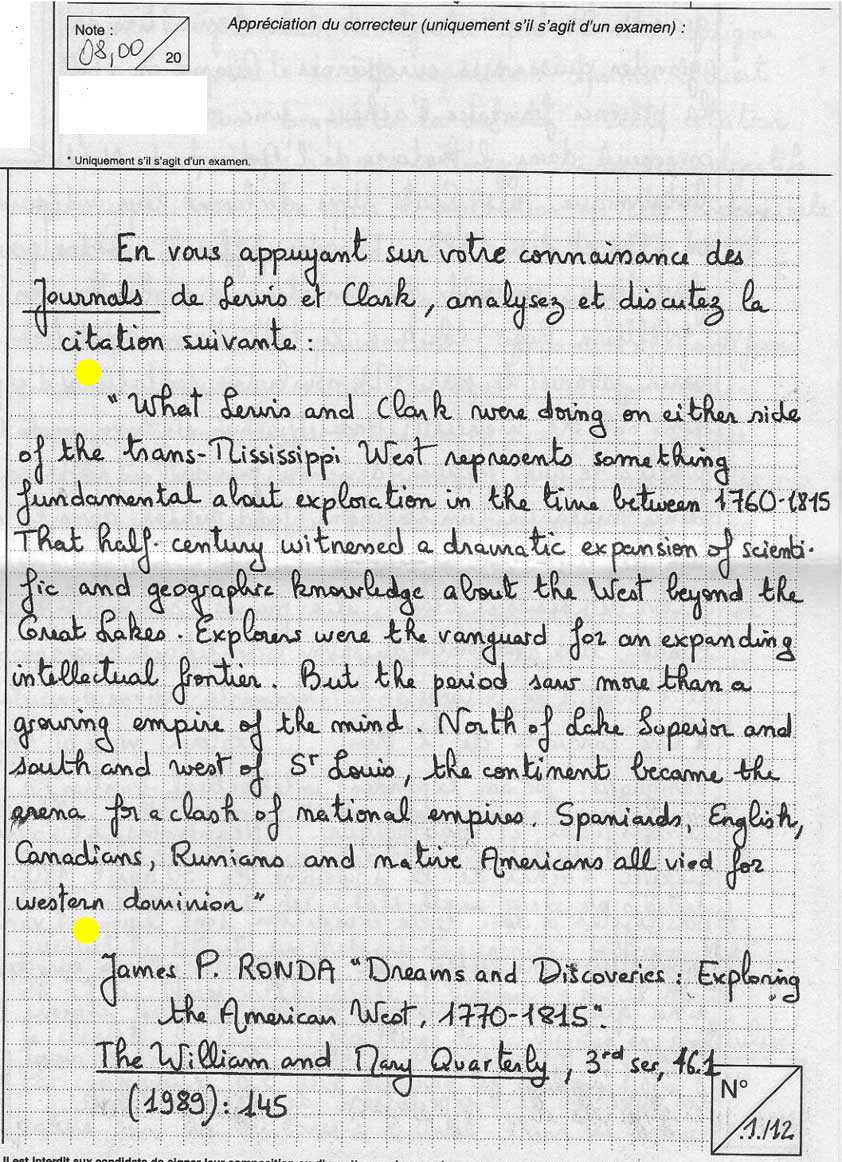 Appréciation du correcteur (uniquement s'il s'agit d'un examen) :
Note :
08,00 / 20
* Uniquement s'il s'agit d'un examen.
En vous appuyant sur votre connaissance des
Journals de Lewis et Clark, analysez et discutez la
citation suivante :
"What Lewis and Clark were doing on either side
of the trans-Mississippi West represents something
fundamental about exploration in the time between 1760-1815
That half-century witnessed a dramatic expansion of scienti-
fic and geographic knowledge about the West beyond the
Great Lakes. Explorers were the vanguard for an expanding
intellectual frontier. But the period saw more than a
growing empire of the mind. North of Lake Superior and
south and west of St Louis, the continent became the
arena for a clash of national empires. Spaniards, English,
Canadians, Russians and native Americans all vied for
western dominion"
James P. RONDA "Dreams and Discoveries : Exploring
the American West, 1770-1815".
The William and Mary Quarterly, 3rd ser, 46.1
(1989) : 145
N°
1./12